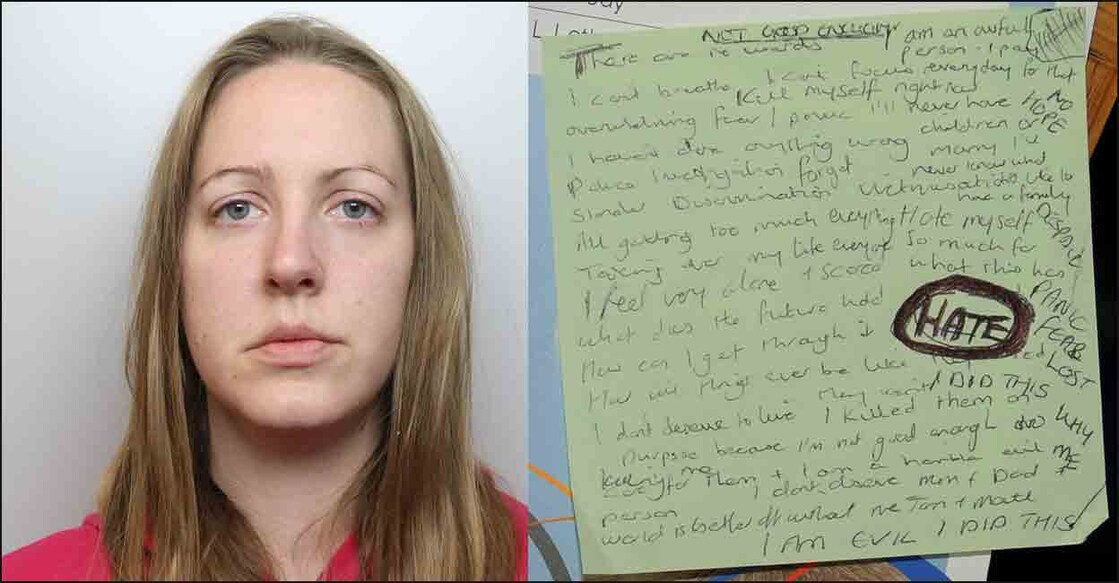 NOT GOOD ENOUGH
There are no words
I am an awful person - I pay
I cant breathe I cant focus everyday for that
Kill myself right now
overwhelming fear / panic I'll never have NO HOPE
I haven't done anything wrong children or marry I'll
Police investigation forget never know what
Slander Discrimination Victimisation like to
have a family
all getting too much everything Hate myself DESPAIR
Taking over my life so much for
I feel very alone + scared what this has
what does the future hold PANIC
HATE
How can I get through it FEAR
How will things ever be like LOST
I DID THIS
I dont deserve to live I killed them on
purpose because I'm not good enough WHY
to care for them + I am a horrible evil ME
person I dont deserve Mum + Dad +
world is better off without me
I AM EVIL I DID THIS